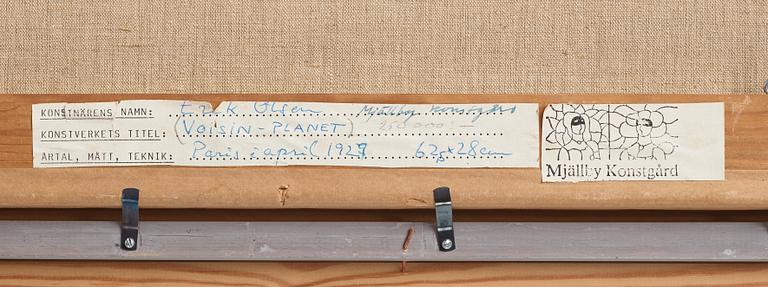 KONSTNÄRENS NAMN: Erik Olsen Mjällby Konstgård
KONSTVERKETS TITEL: (VOISIN-PLANET) 250 000:-
ÅRTAL, MÅTT, TEKNIK: Paris i april 1927 62,5 x 28 cm
Mjällby Konstgård